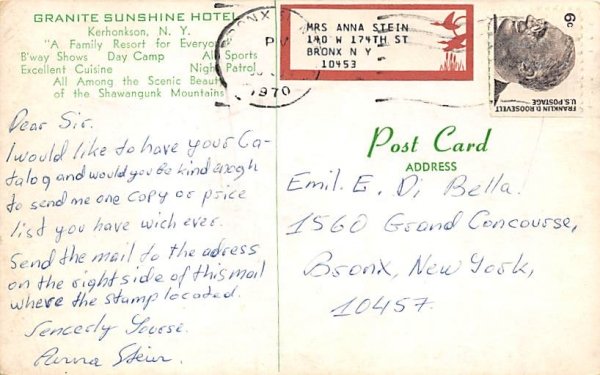 GRANITE SUNSHINE HOTEL
Kerhonkson, N. Y.
"A Family Resort for Everyone"
B'way Shows Day Camp All Sports
Excellent Cuisine Night Patrol
All Among the Scenic Beauty
of the Shawangunk Mountains
Dear Sir.
I would like to have your Ca-
talog and would you be kind enogh
to send me one copy or price
list you have wich ever.
Send the mail to the adress
on the right side of this mail
where the stamp located.
Sencerly Yourse.
Anna Stein.
BRONX
PM
1970
MRS ANNA STEIN
140 W 174TH ST
BRONX N Y
10453
6c
FRANKLIN D. ROOSEVELT
U.S. POSTAGE
Post Card
ADDRESS
Emil. E. Di Bella.
1560 Grand Concourse,
Bronx, New York,
10457.